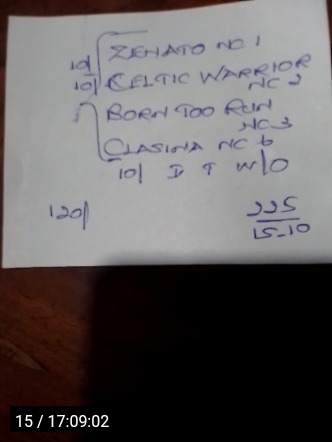 ZENATO NC 1
10/
10/ CELTIC WARRIOR
NC 2
BORN TOO RUN
NC 3
CLASINA NC 6
10/ D T W/O
120/
225
15-10
15 / 17:09:02